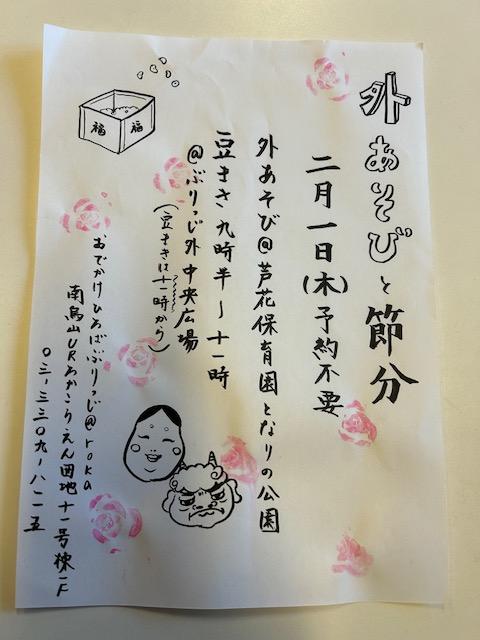 外あそびと節分
二月一日(木)予約不要
外あそび@芦花保育園となりの公園
豆まき九時半〜十一時
@ぶりっじ外中央広場
(豆まきは十一時から)
おでかけひろばぶりっじ@roka
南烏山URあかしりえん団地十一号棟一F
〇三-三三〇九-八二一五
福 福